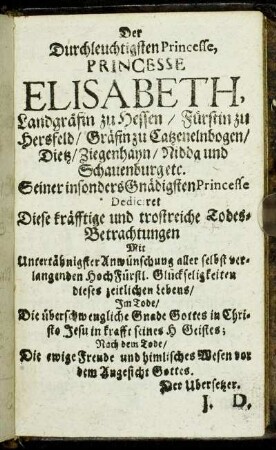 Der
Durchleuchtigsten Princesse,
PRINCESSE
ELISABETH,
Landgräfin zu Hessen / Fürstin zu
Hersfeld / Gräfin zu Catzenelnbogen /
Dietz / Ziegenhayn / Nidda und
Schauenburg etc.
Seiner insonders Gnädigsten Princesse
Dediciret
Diese kräfftige und trostreiche Todes-
Betrachtungen
Mit
Untertähnigster Anwünschung aller selbst ver-
langenden HochFürstl. Glückseligkeiten
dieses zeitlichen Lebens /
Im Tode /
Die überschwengliche Gnade Gottes in Chri-
sto Jesu in krafft seines H Geistes;
Nach dem Tode /
Die ewige Freude und himlisches Wesen vor
dem Angesicht Gottes.
Der Ubersetzer.
J. D.